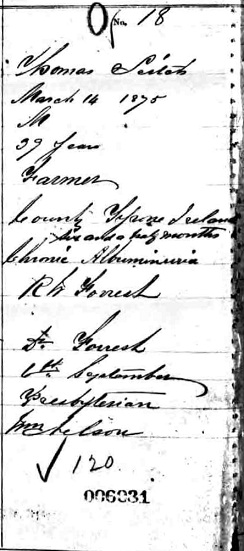 No. 18
Thomas Leitch
March 14 1875
M
39 Years
Farmer
County Tyrone Ireland
six and a half months
Chronic Albuminuria
R W Forrest
Dr Forrest
1st September
Presbyterian
Wm Nelson
✓ 120
006831